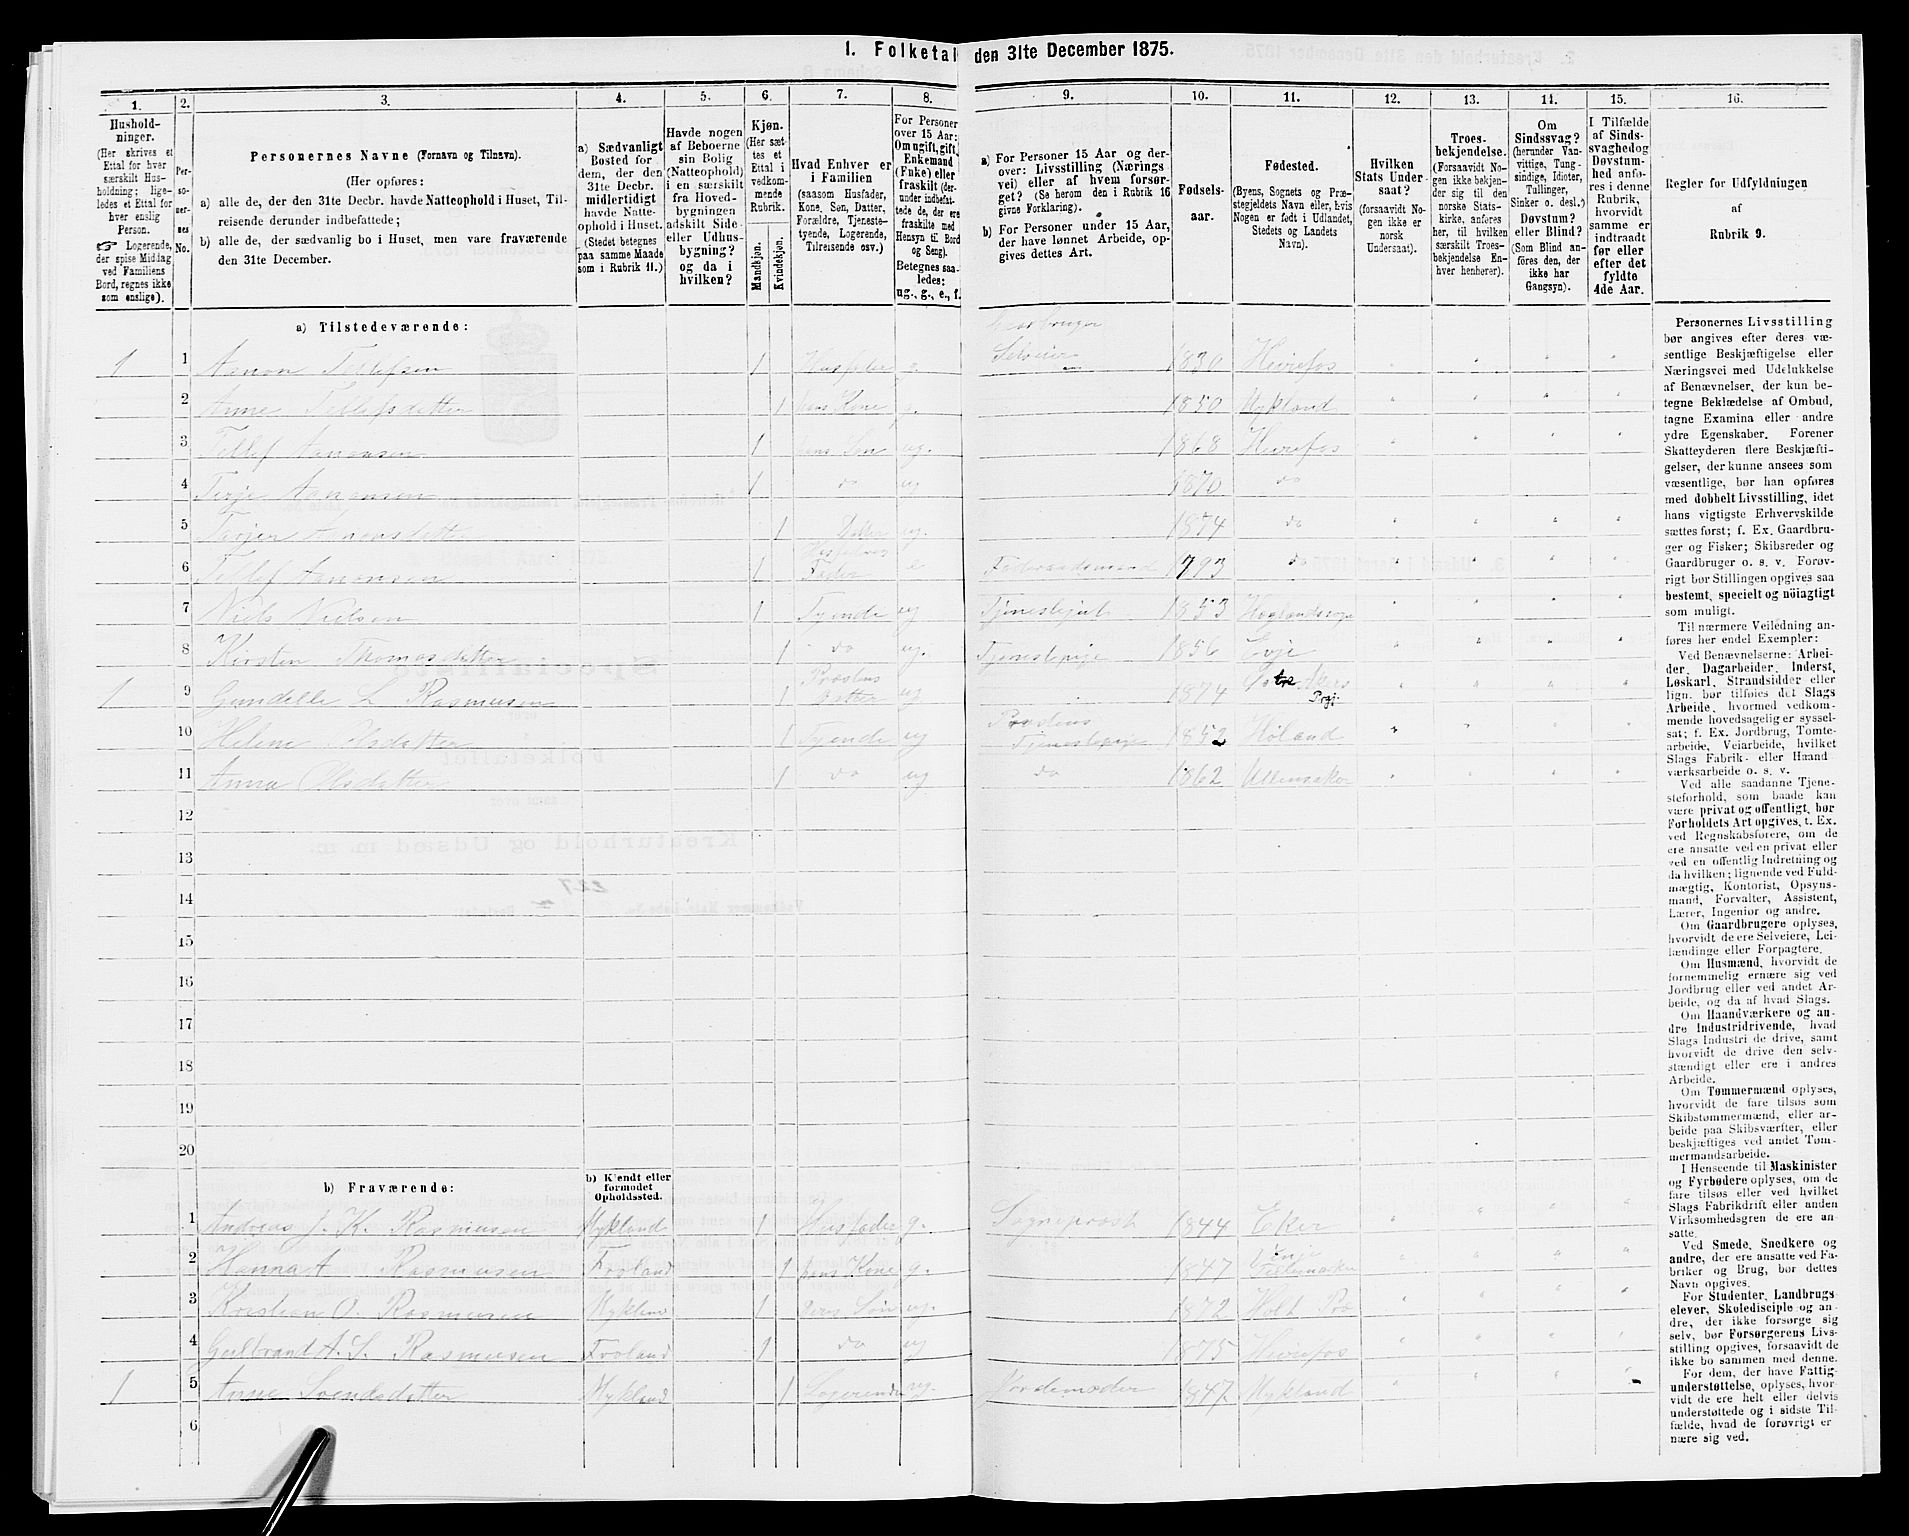 1. Folketal den 31te December 1875.
1. 2. 3. 4. 5. 6. 7. 8. 9. 10. 11. 12. 13. 14. 15. 16.
Hushold-
ninger.
(Her skrives et
Ettal for hver
særskilt Hus-
holdning; lige-
ledes et Ettal for
hver enslig
Person.
☞ Logerende,
der spise Middag
ved Familiens
Bord, regnes ikke
som enslige).
Per-
so-
ner-
nes
No.
Personernes Navne (Fornavn og Tilnavn).
(Her opføres:
a) alle de, der den 31te Decbr. havde Natteophold i Huset, Til-
reisende derunder indbefattede;
b) alle de, der sædvanlig bo i Huset, men vare fraværende
den 31te December.
a) Sædvanligt
Bosted for
dem, der den
31te Decbr.
midlertidigt
havde Natte-
ophold i Huset.
(Stedet betegnes
paa samme Maade
som i Rubrik 11.)
Havde nogen
af Beboerne
sin Bolig
(Natteophold)
i en særskilt
fra Hoved-
bygningen
adskilt Side-
eller Udhus-
bygning?
og da i
hvilken?
Kjøn.
(Her sæt-
tes et
Ettal i
vedkom-
mende
Rubrik.
Mandkjøn.
Kvindekjøn.
Hvad Enhver er
i Familien
(saasom Husfader,
Kone, Søn, Datter,
Forældre, Tjeneste-
tyende, Logerende,
Tilreisende osv.)
For Personer
over 15 Aar:
Om ugift, gift,
Enkemand
(Enke) eller
fraskilt (der-
under indbefat-
tede de, der ere
fraskilte med
Hensyn til Bord
og Seng).
Betegnes saa-
ledes:
ug., g., e., f.
a) For Personer 15 Aar og der-
over: Livsstilling (Nærings
vei) eller af hvem forsør-
get? (Se herom den i Rubrik 16
givne Forklaring).
b) For Personer under 15 Aar,
der have lønnet Arbeide, op-
gives dettes Art.
Fødsels-
aar.
Fødested.
(Byens, Sognets og Præ-
stegjeldets Navn eller, hvis
Nogen er født i Udlandet,
Stedets og Landets
Navn).
Hvilken
Stats Under
saat?
(forsaavidt No-
gen ikke er
norsk
Undersaat).
Troes-
bekjendelse.
(Forsaavidt No-
gen ikke bekjen-
der sig til den
norske Stats-
kirke, anføres
her, til hvilken
særskilt Troes-
bekjendelse En-
hver henhører).
Om
Sindssvag?
(herunder Van-
vittige, Tung-
sindige, Idioter,
Tullinger,
Sinker o. desl.)
Døvstum?
eller Blind?
(Som Blind an-
føres den, der
ikke har
Gangsyn).
I Tilfælde
af Sinds-
svaghed og
Døvstum-
hed anfø-
res i denne
Rubrik,
hvorvidt
samme er
indtraadt
før eller
efter det
fyldte
4de Aar.
Regler for Udfyldningen
af
Rubrik 9.
a) Tilstedeværende:
Gaardbruger
1 1 Aanon Tellefsen 1 Husfader g. Selveier 1830 Heirefos
2 Anne Tellefsdatter 1 hans Kone g. 1850 Mykland
3 Tellef Aanonsen 1 hans Søn ug. 1868 Heirefos
4 Terje Aanonsen 1 do ug 1870 do
5 Aanonsdatter 1 Datter ug. 1874 do
6 Tellef Aanonsen 1 Fader e Føderaadsmand 1793 do
7 Niels Nielsen 1 Tyende ug Tjenestekarl 1853
8 Kirsten Thomasdatter 1 do ug. Tjenestepige 1856 Evje
1 9 Gundelle L Rasmusen 1 Datter ug 1874 Østre Akers
Prgj.
10 Helene Olsdatter 1 Tyende ug Tjenestepige 1852 Høland
11 Anna Olsdatter 1 do ug do 1862 Ullensaker
12
13
14
15
16
17
18
19
20
b) Fraværende:
b) Kjendt eller
formodet
Opholdssted.
1 Andreas J. K. Rasmusen Mykland 1 Husfader g. Sogneprest 1844 Eker
2 Hanna A Rasmusen Froland 1 hans Kone g. 1847
3 Kristian O. Rasmusen Mykland 1 deres Søn ug. 1872 Holt
4 Gulbrant A. S. Rasmusen Froland 1 do ug 1875 Heirefos
1 5 Anne Svendsdatter Mykland 1 Logerende ug. Jordemoder 1847 Mykland
6
Personernes Livsstilling
bør angives efter deres væ-
sentlige Beskjæftigelse eller
Næringsvei med Udelukkelse
af Benævnelser, der kun be-
tegne Beklædelse af Ombud,
tagne Examina eller andre
ydre Egenskaber. Forener
Skatteyderen flere Beskjæfti-
gelser, der kunne ansees som
væsentlige, bør han opføres
med dobbelt Livsstilling, idet
hans vigtigste Erhvervskilde
sættes først; f. Ex. Gaardbru-
ger og Fisker; Skibsreder og
Gaardbruger o. s. v. Forøv-
rigt bør Stillingen opgives saa
bestemt, specielt og nöiagtigt
som muligt.
Til nærmere Veiledning an-
føres her endel Exempler:
Ved Benævnelserne: Arbei-
der, Dagarbeider, Inderst,
Løskarl, Strandsidder eller
lign. bør tilføies det Slags
Arbeide, hvormed vedkom-
mende hovedsagelig er syssel-
sat; f. Ex. Jordbrug, Tomte-
arbeide, Veiarbeide, hvilket
Slags Fabrik- eller Haand-
værksarbeide o. s. v.
Ved alle saadanne Tjene-
steforhold, som baade kan
være privat og offentligt, bør
Forholdets Art opgives, t. Ex.
ved Regnskabsførere, om de
ere ansatte ved en privat eller
ved en offentlig Indretning og
da hvilken; lignende ved Fuld-
mægtig, Kontorist, Opsyns-
mand, Forvalter, Assistent,
Lærer, Ingeniør og andre.
Om Gaardbrugere oplyses,
hvorvidt de ere Selveiere, Lei-
lændinge eller Forpagtere.
Om Husmænd, hvorvidt de
fornemmelig ernære sig ved
Jordbrug eller ved andet Ar-
beide, og da af hvad Slags.
Om Haandværkere og an-
dre Industridrivende, hvad
Slags Industri de drive, samt
hvorvidt de drive den selv-
stændigt eller ere i andres
Arbeide.
Om Tømmermænd oplyses,
hvorvidt de fare tilsøs som
Skibstømmermænd, eller ar-
beide paa Skibsværfter, eller
beskjæftiges ved andet Tøm-
mermandsarbeide.
I Henseende til Maskinister
og Fyrbødere oplyses, om de
fare tilsøs eller ved hvilket
Slags Fabrikdrift eller anden
Virksomhedsgren de ere an-
satte.
Ved Smede, Snedkere og
andre, der ere ansatte ved Fa-
briker og Brug, bør dettes
Navn opgives.
For Studenter, Landbrugs-
elever, Skoledisciple og an-
dre, der ikke forsørge sig
selv, bør Forsørgerens Livs-
stilling opgives, forsaavidt de
ikke bo sammen med denne.
For dem, der have Fattig-
understøttelse, oplyses, hvor-
vidt de ere helt eller delvis
understøttede og i sidste Til-
fælde, hvad de forøvrigt er
nære sig ved.